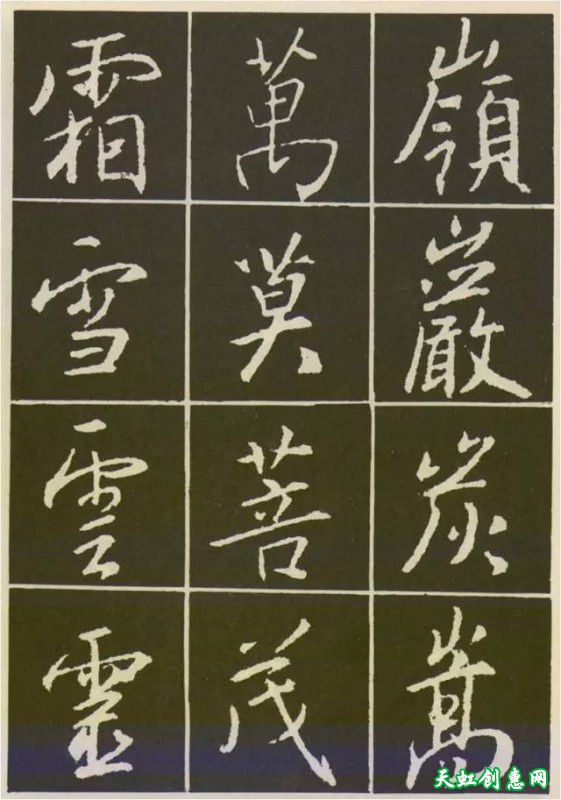 嶺巖炭嵩
萬莫菩茂
霜雪雲靈
天虹创惠网